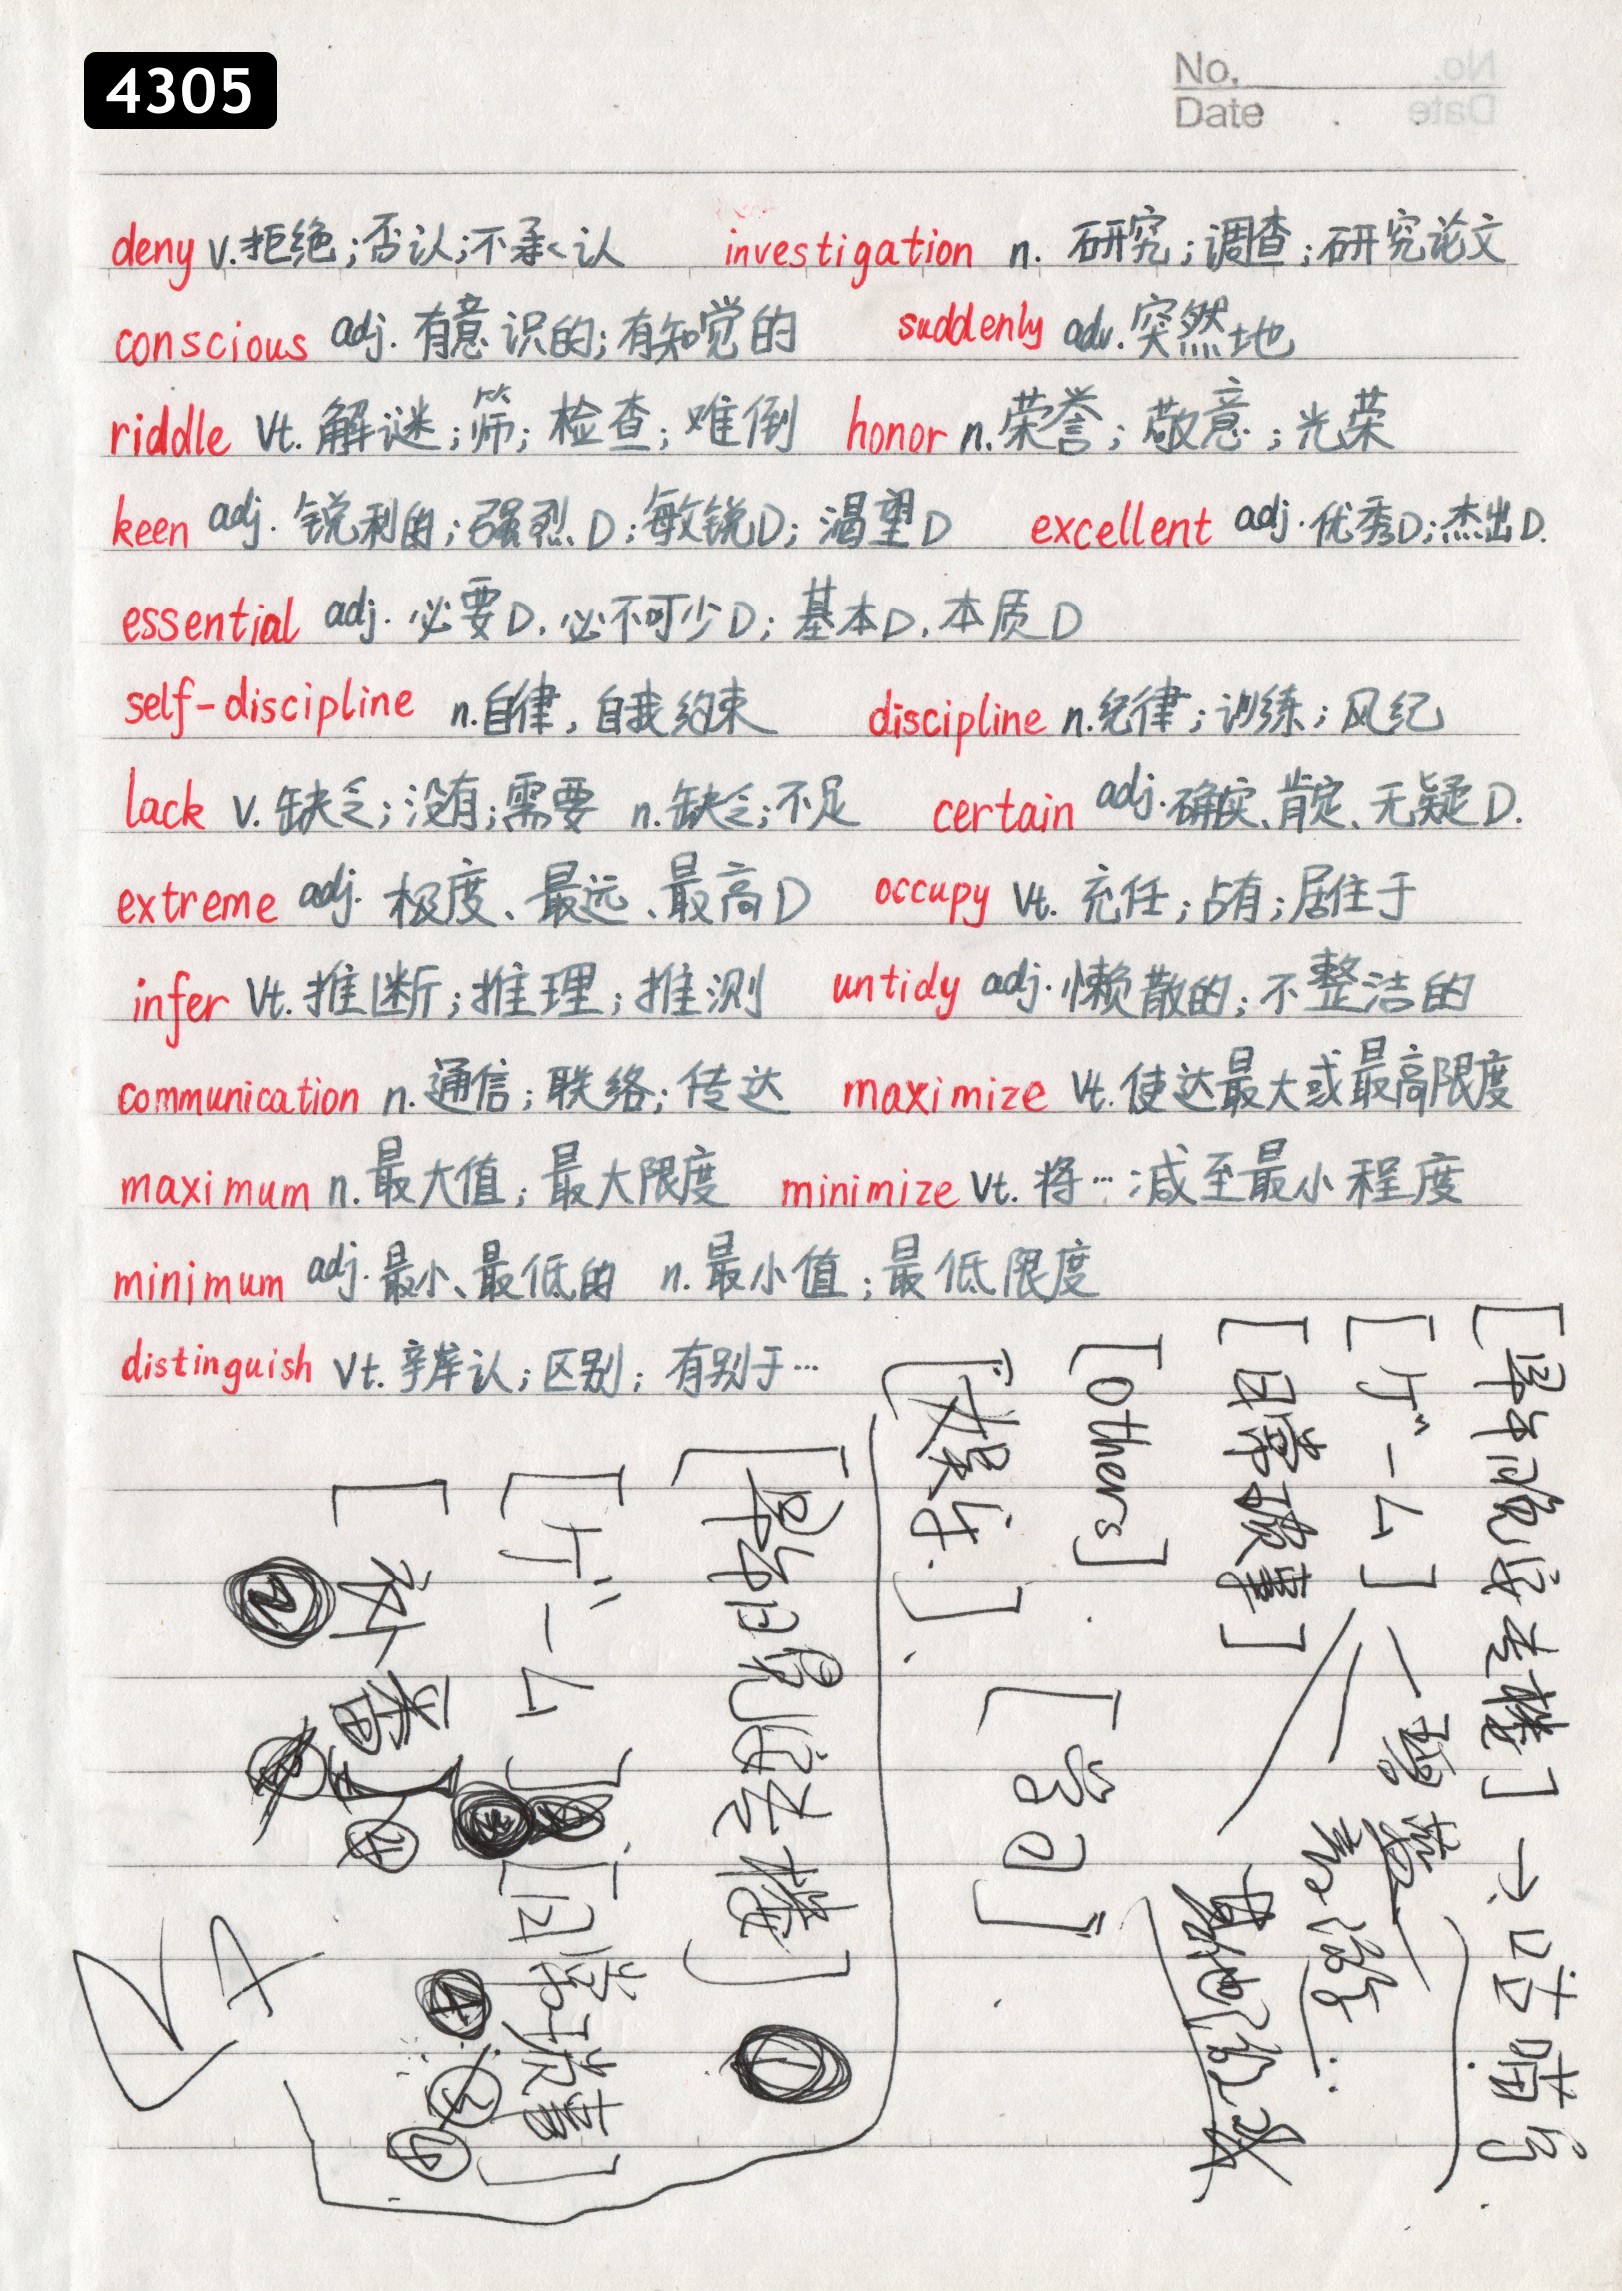 4305
No.
Date
deny v.拒绝;否认;不承认 investigation n. 研究;调查;研究论文
conscious adj. 有意识的;有知觉的 suddenly adv.突然地
riddle vt. 解谜;筛;检查;难倒 honor n.荣誉;敬意;光荣
keen adj. 锐利的;强烈D;敏锐D;渴望D excellent adj.优秀D;杰出D.
essential adj. 必要D.必不可少D;基本D.本质D
self-discipline n.自律,自我约束 discipline n.纪律;训练;风纪
lack v.缺乏;没有;需要 n.缺乏;不足 certain adj.确实、肯定、无疑D.
extreme adj. 极度、最远、最高D occupy vt. 充任;占有;居住于
infer vt.推断;推理;推测 untidy adj.懒散的;不整洁的
communication n.通信;联络;传达 maximize vt.使达最大或最高限度
maximum n.最大值;最大限度 minimize vt. 将…减至最小程度
minimum adj.最小、最低的 n.最小值;最低限度
distinguish vt.辨认;区别;有别于…
[日常琐事]
[others]
[娱乐.]
[学习]
[补番]
[日常琐事]